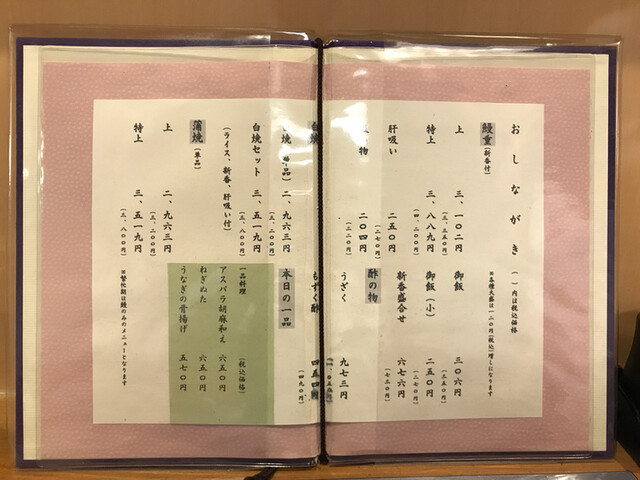 おしながき
( )内は税込価格
※各種大盛は一二〇円(税込)増しになります
鰻重(新香付)
上 三、一〇二円
(三、三五〇円)
特上 三、八八九円
(四、二〇〇円)
肝吸い 二五〇円
(二七〇円)
物 二〇四円
(二二〇円)
御飯 三〇六円
(三三〇円)
御飯(小) 二五〇円
(二七〇円)
新香盛合せ 六七六円
(七三〇円)
酢の物
うざく 九七三円
もずく酢 四五四円
(四九〇円)
白焼
二、九六三円
(三、二〇〇円)
白焼セット 三、五一九円
(三、八〇〇円)
(ライス、新香、肝吸い付)
蒲焼(単品)
上 二、九六三円
(三、二〇〇円)
特上 三、五一九円
(三、八〇〇円)
本日の一品
一品料理 (税込価格)
アスパラ胡麻和え 六五〇円
ねぎぬた 六五〇円
うなぎの骨揚げ 五七〇円
※繁忙期は鰻のみのメニューとなります